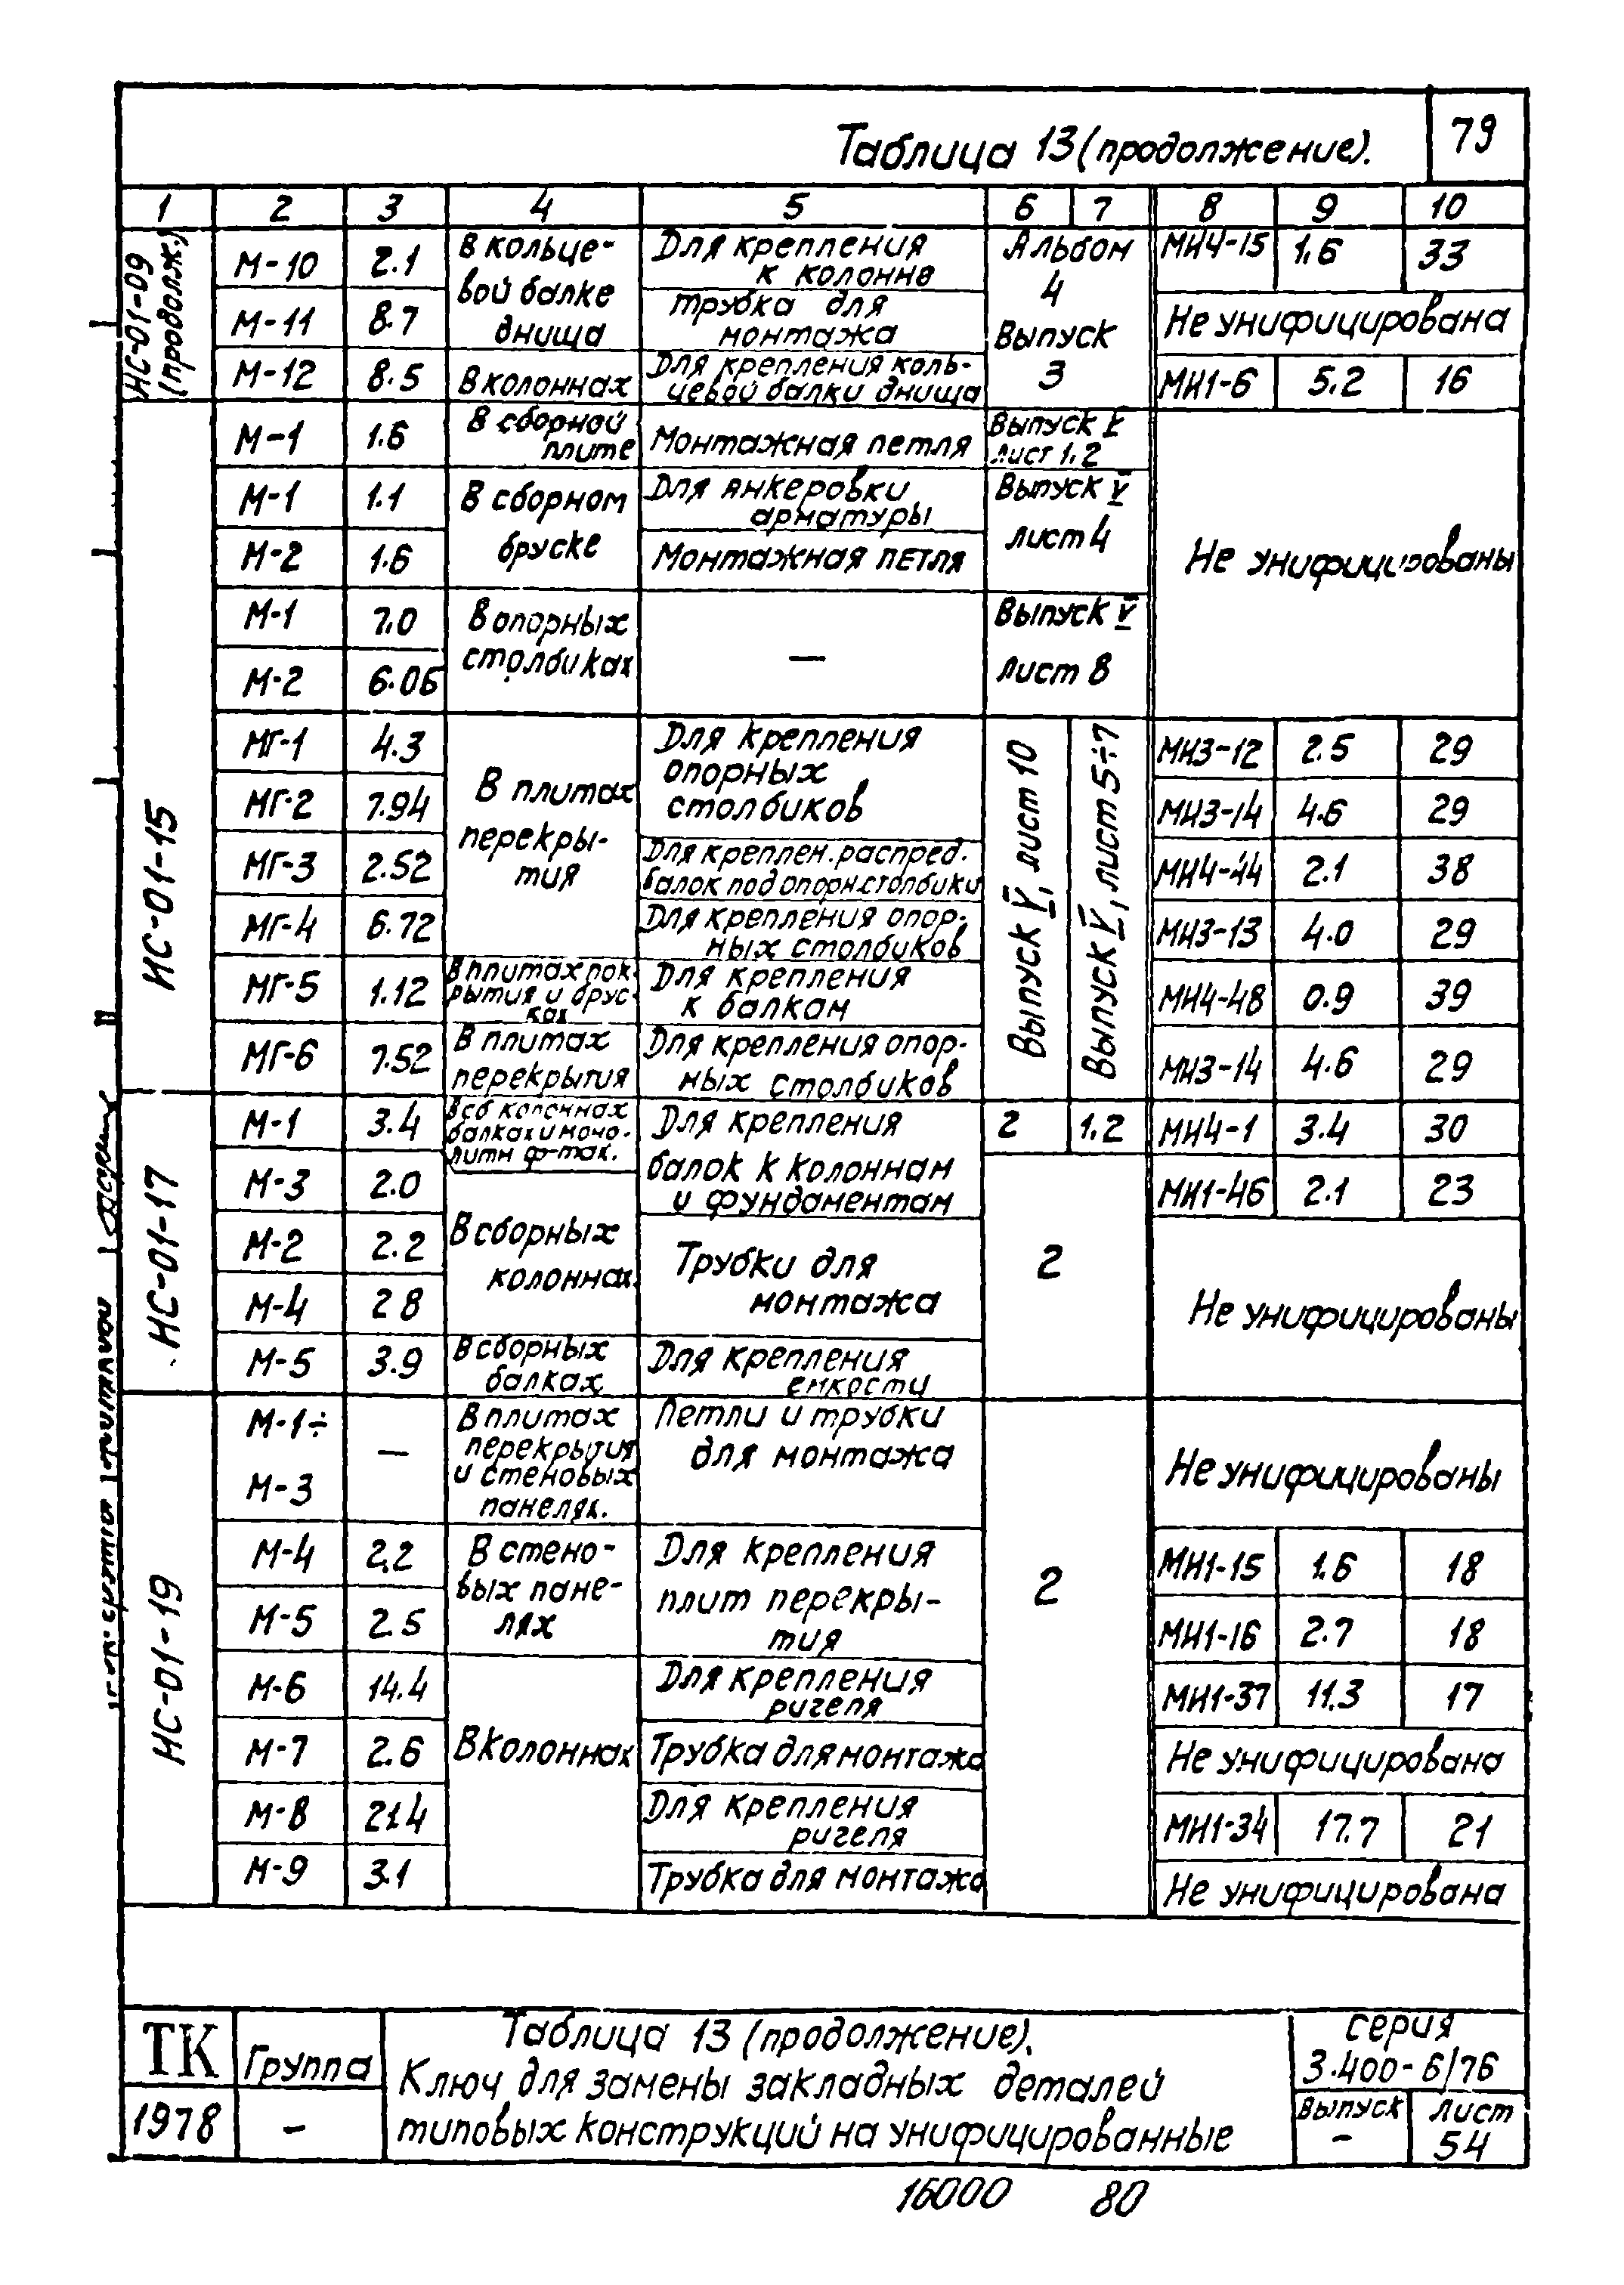 79
Таблица 13 (продолжение).
1 2 3 4 5 6 7 8 9 10
ИС-01-09 (продолж.)
М-10 2.1 В кольце-
вой балке
днища
Для крепления
к колонне
Альбом
4
Выпуск
3
МН4-15 1.6 33
М-11 8.7 трубка для
монтажа
Не унифицирована
М-12 8.5 В колоннах Для крепления коль-
цевой балки днища
МН1-6 5.2 16
ИС-01-15
М-1 1.6 В сборной
плите
Монтажная петля
Выпуск V
лист 1.2
Не унифицированы
М-1 1.1 В сборном
бруске
Для анкеровки
арматуры
Выпуск V
лист 4
М-2 1.6 Монтажная петля
М-1 7.0 В опорных
столбиках
—
Выпуск V
лист 8
М-2 6.06
МГ-1 4.3 В плитах
перекры-
тия
Для крепления
опорных
столбиков
Выпуск V, лист 10
Выпуск V, лист 5÷7
МН3-12 2.5 29
МГ-2 7.94 МН3-14 4.6 29
МГ-3 2.52 Для креплен. распред.
балок под опорн.столбики
МН4-44 2.1 38
МГ-4 6.72 Для крепления опор-
ных столбиков
МН3-13 4.0 29
МГ-5 1.12 В плитах пок-
рытия и брус-
ках
Для крепления
к балкам
МН4-48 0.9 39
МГ-6 7.52 В плитах
перекрытия
Для крепления опор-
ных столбиков
МН3-14 4.6 29
ИС-01-17
М-1 3.4 В сб колоннах
балках и моно-
литн ф-так.
Для крепления
балок к колоннам
и фундаментам
2 1.2 МН4-1 3.4 30
М-3 2.0 В сборных
колоннах
2
МН1-46 2.1 23
М-2 2.2 Трубки для
монтажа
Не унифицированы
М-4 2 8
М-5 3.9 В сборных
балках
Для крепления
емкости
ИС-01-19
М-1÷
М-3
—
В плитах
перекрытия
и стеновых
панелях.
Петли и трубки
для монтажа
2
Не унифицированы
М-4 2.2 В стено-
вых пане-
лях
Для крепления
плит перекры-
тия
МН1-15 1.6 18
М-5 2.5 МН1-16 2.7 18
М-6 14.4 В колоннах Для крепления
ригеля
МН1-37 11.3 17
М-7 2.6 Трубка для монтажа Не унифицирована
М-8 21.4 Для крепления
ригеля
МН1-34 17.7 21
М-9 3.1 Трубка для монтажа Не унифицирована
ТК
1978
Группа
—
Таблица 13 (продолжение).
Ключ для замены закладных деталей
типовых конструкций на унифицированные
серия
3.400-6/76
Выпуск
—
лист
54
16000 80